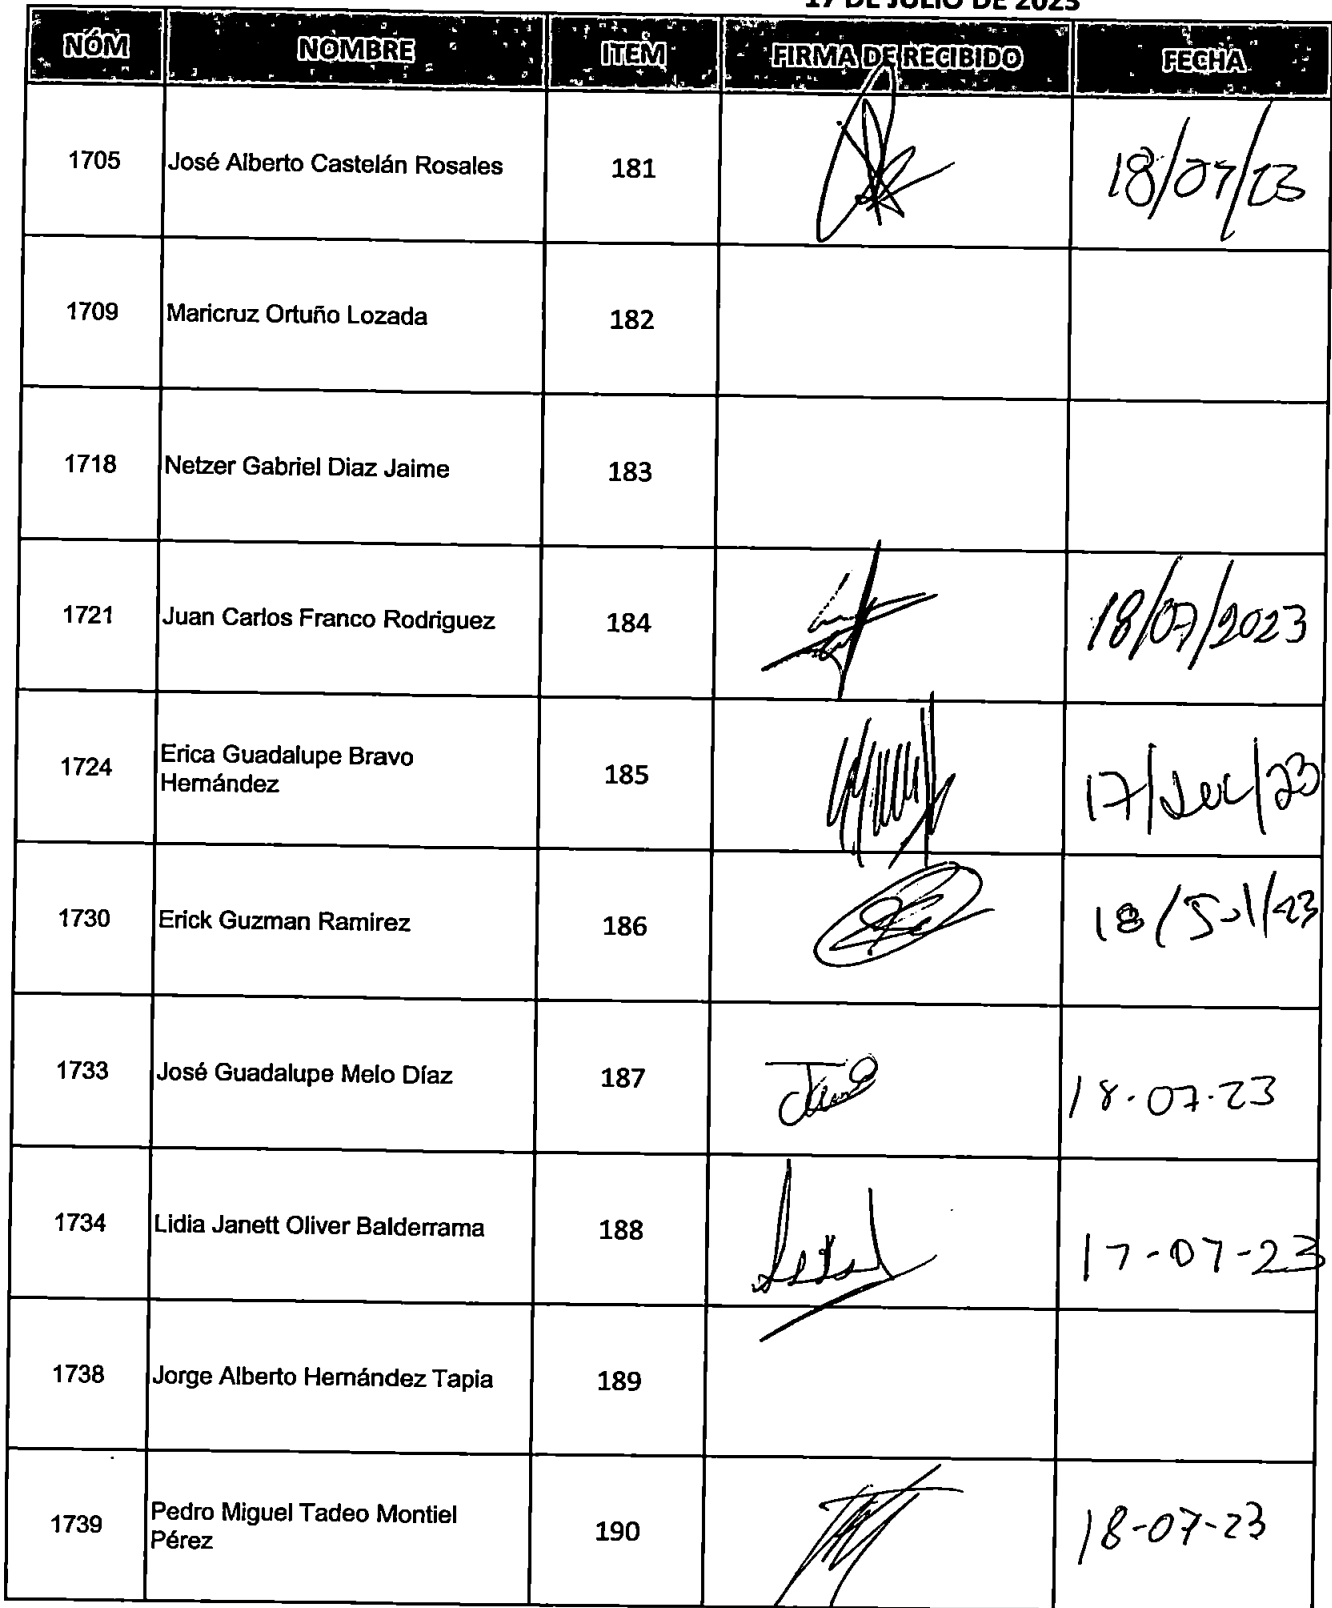 17 DE JULIO DE 2023
NÓM NOMBRE ITEM FIRMA DE RECIBIDO FECHA
1705 José Alberto Castelán Rosales 181 18/07/23
1709 Maricruz Ortuño Lozada 182
1718 Netzer Gabriel Diaz Jaime 183
1721 Juan Carlos Franco Rodriguez 184 18/07/2023
1724 Erica Guadalupe Bravo
Hernández 185 17/Jul/23
1730 Erick Guzman Ramirez 186 18/Jul/23
1733 José Guadalupe Melo Díaz 187 18.07.23
1734 Lidia Janett Oliver Balderrama 188 17-07-23
1738 Jorge Alberto Hernández Tapia 189
1739 Pedro Miguel Tadeo Montiel
Pérez 190 18-07-23